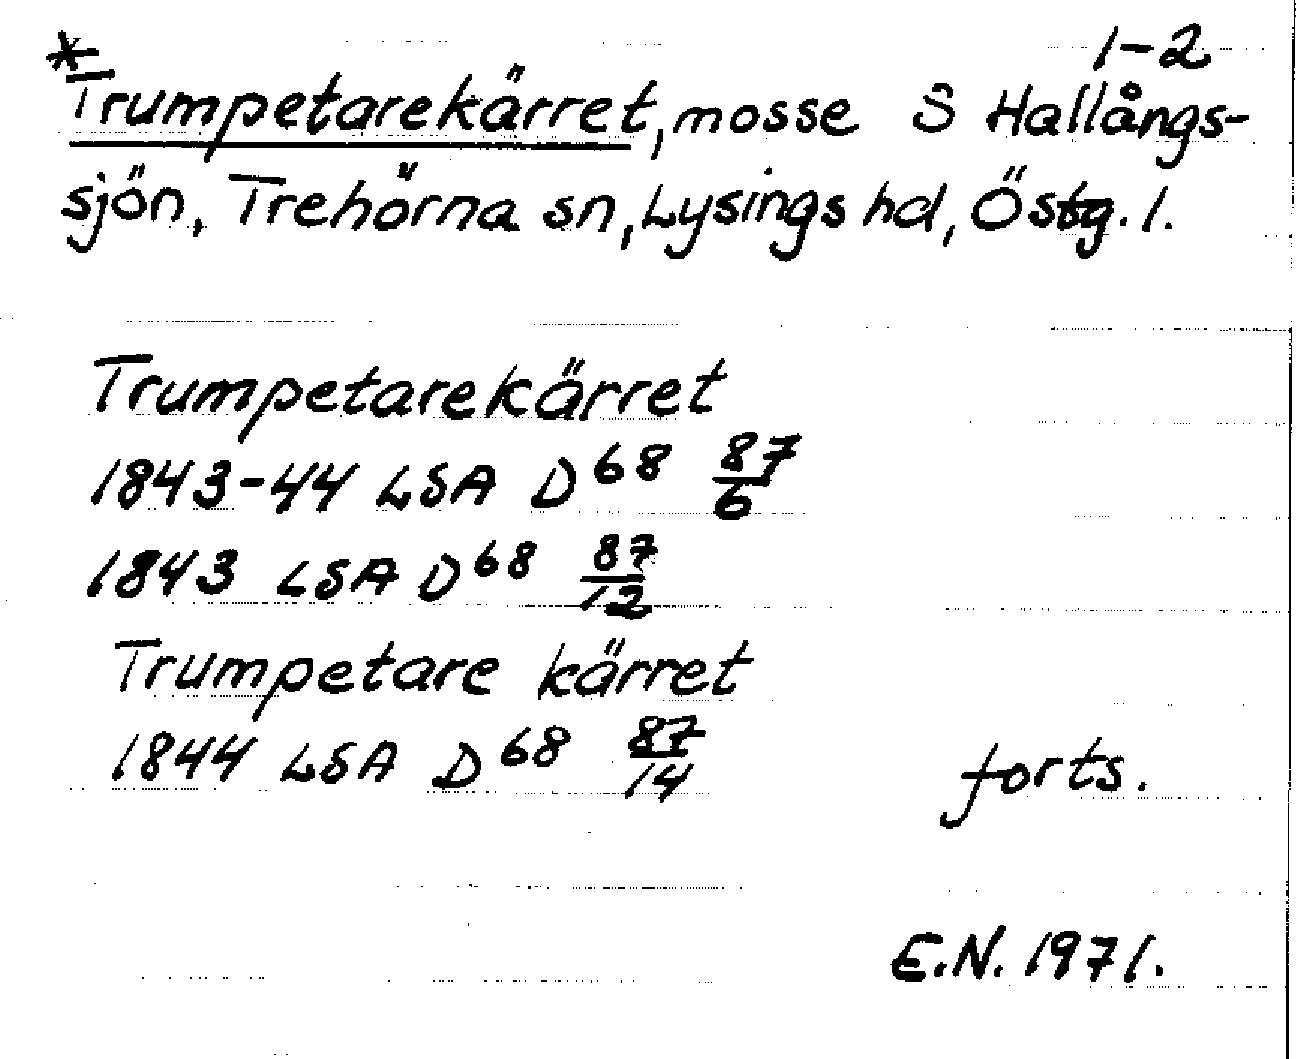 1-2
* Trumpetarekärret, mosse S Hallångs-
sjön, Trehörna sn, Lysings hd, Östg. l.
Trumpetarekärret
1843-44 LSA D68 87/6
1843 LSA D68 87/12
Trumpetare kärret
1844 LSA D68 87/14
forts.
E.N. 1971.